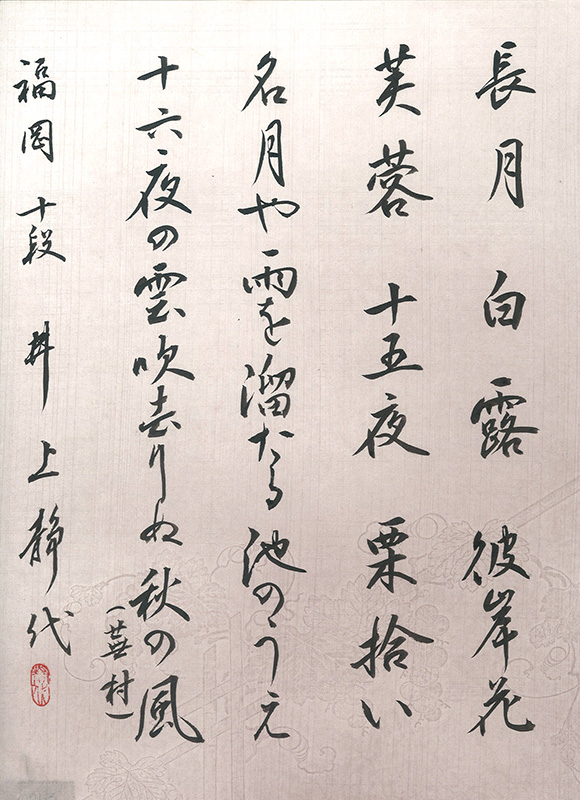 長月 白露 彼岸花
芙蓉 十五夜 栗拾い
名月や雨を溜たる池のうえ
十六夜の雲吹去りぬ秋の風
(蕪村)
福岡 十段 井上静代